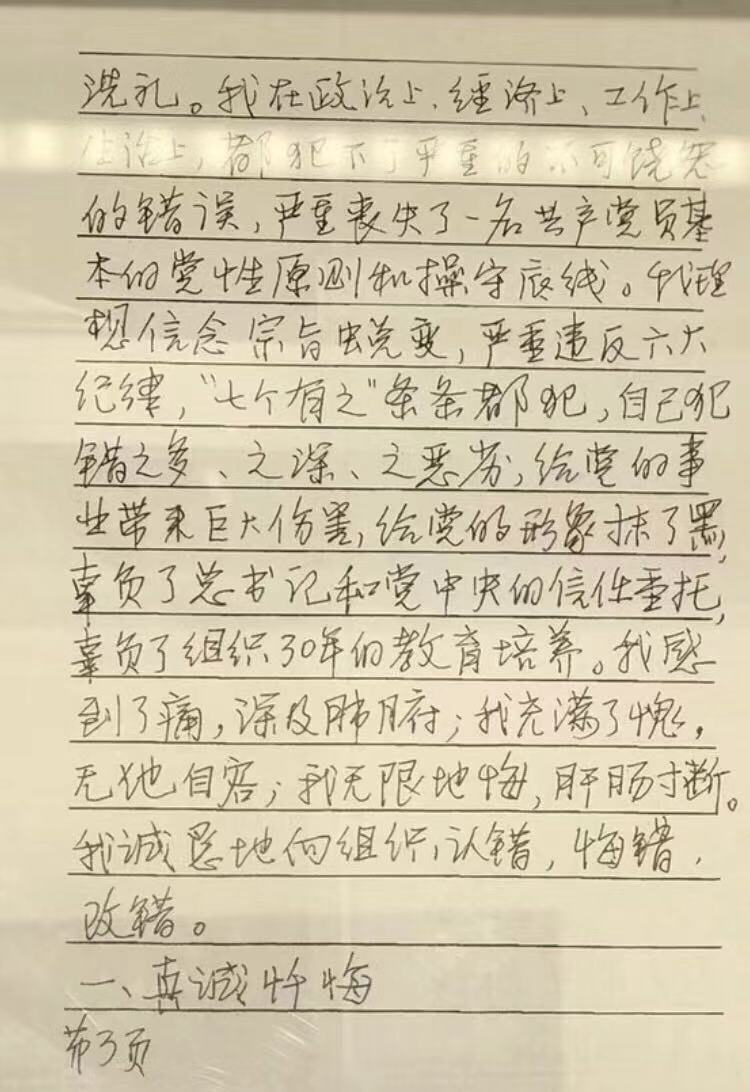 洗礼。我在政治上、经济上、工作上、
生活上，都犯下了严重的不可饶恕
的错误，严重丧失了一名共产党员基
本的党性原则和操守底线。我理
想信念宗旨蜕变，严重违反六大
纪律，“七个有之”条条都犯，自己犯
错之多、之深、之恶劣，给党的事
业带来巨大伤害，给党的形象抹了黑，
辜负了总书记和党中央的信任重托，
辜负了组织30年的教育培养。我感
到了痛，深及肺腑；我充满了愧，
无地自容；我无限地悔，肝肠寸断。
我诚恳地向组织认错，悔错，
改错。
一、真诚忏悔
第3页